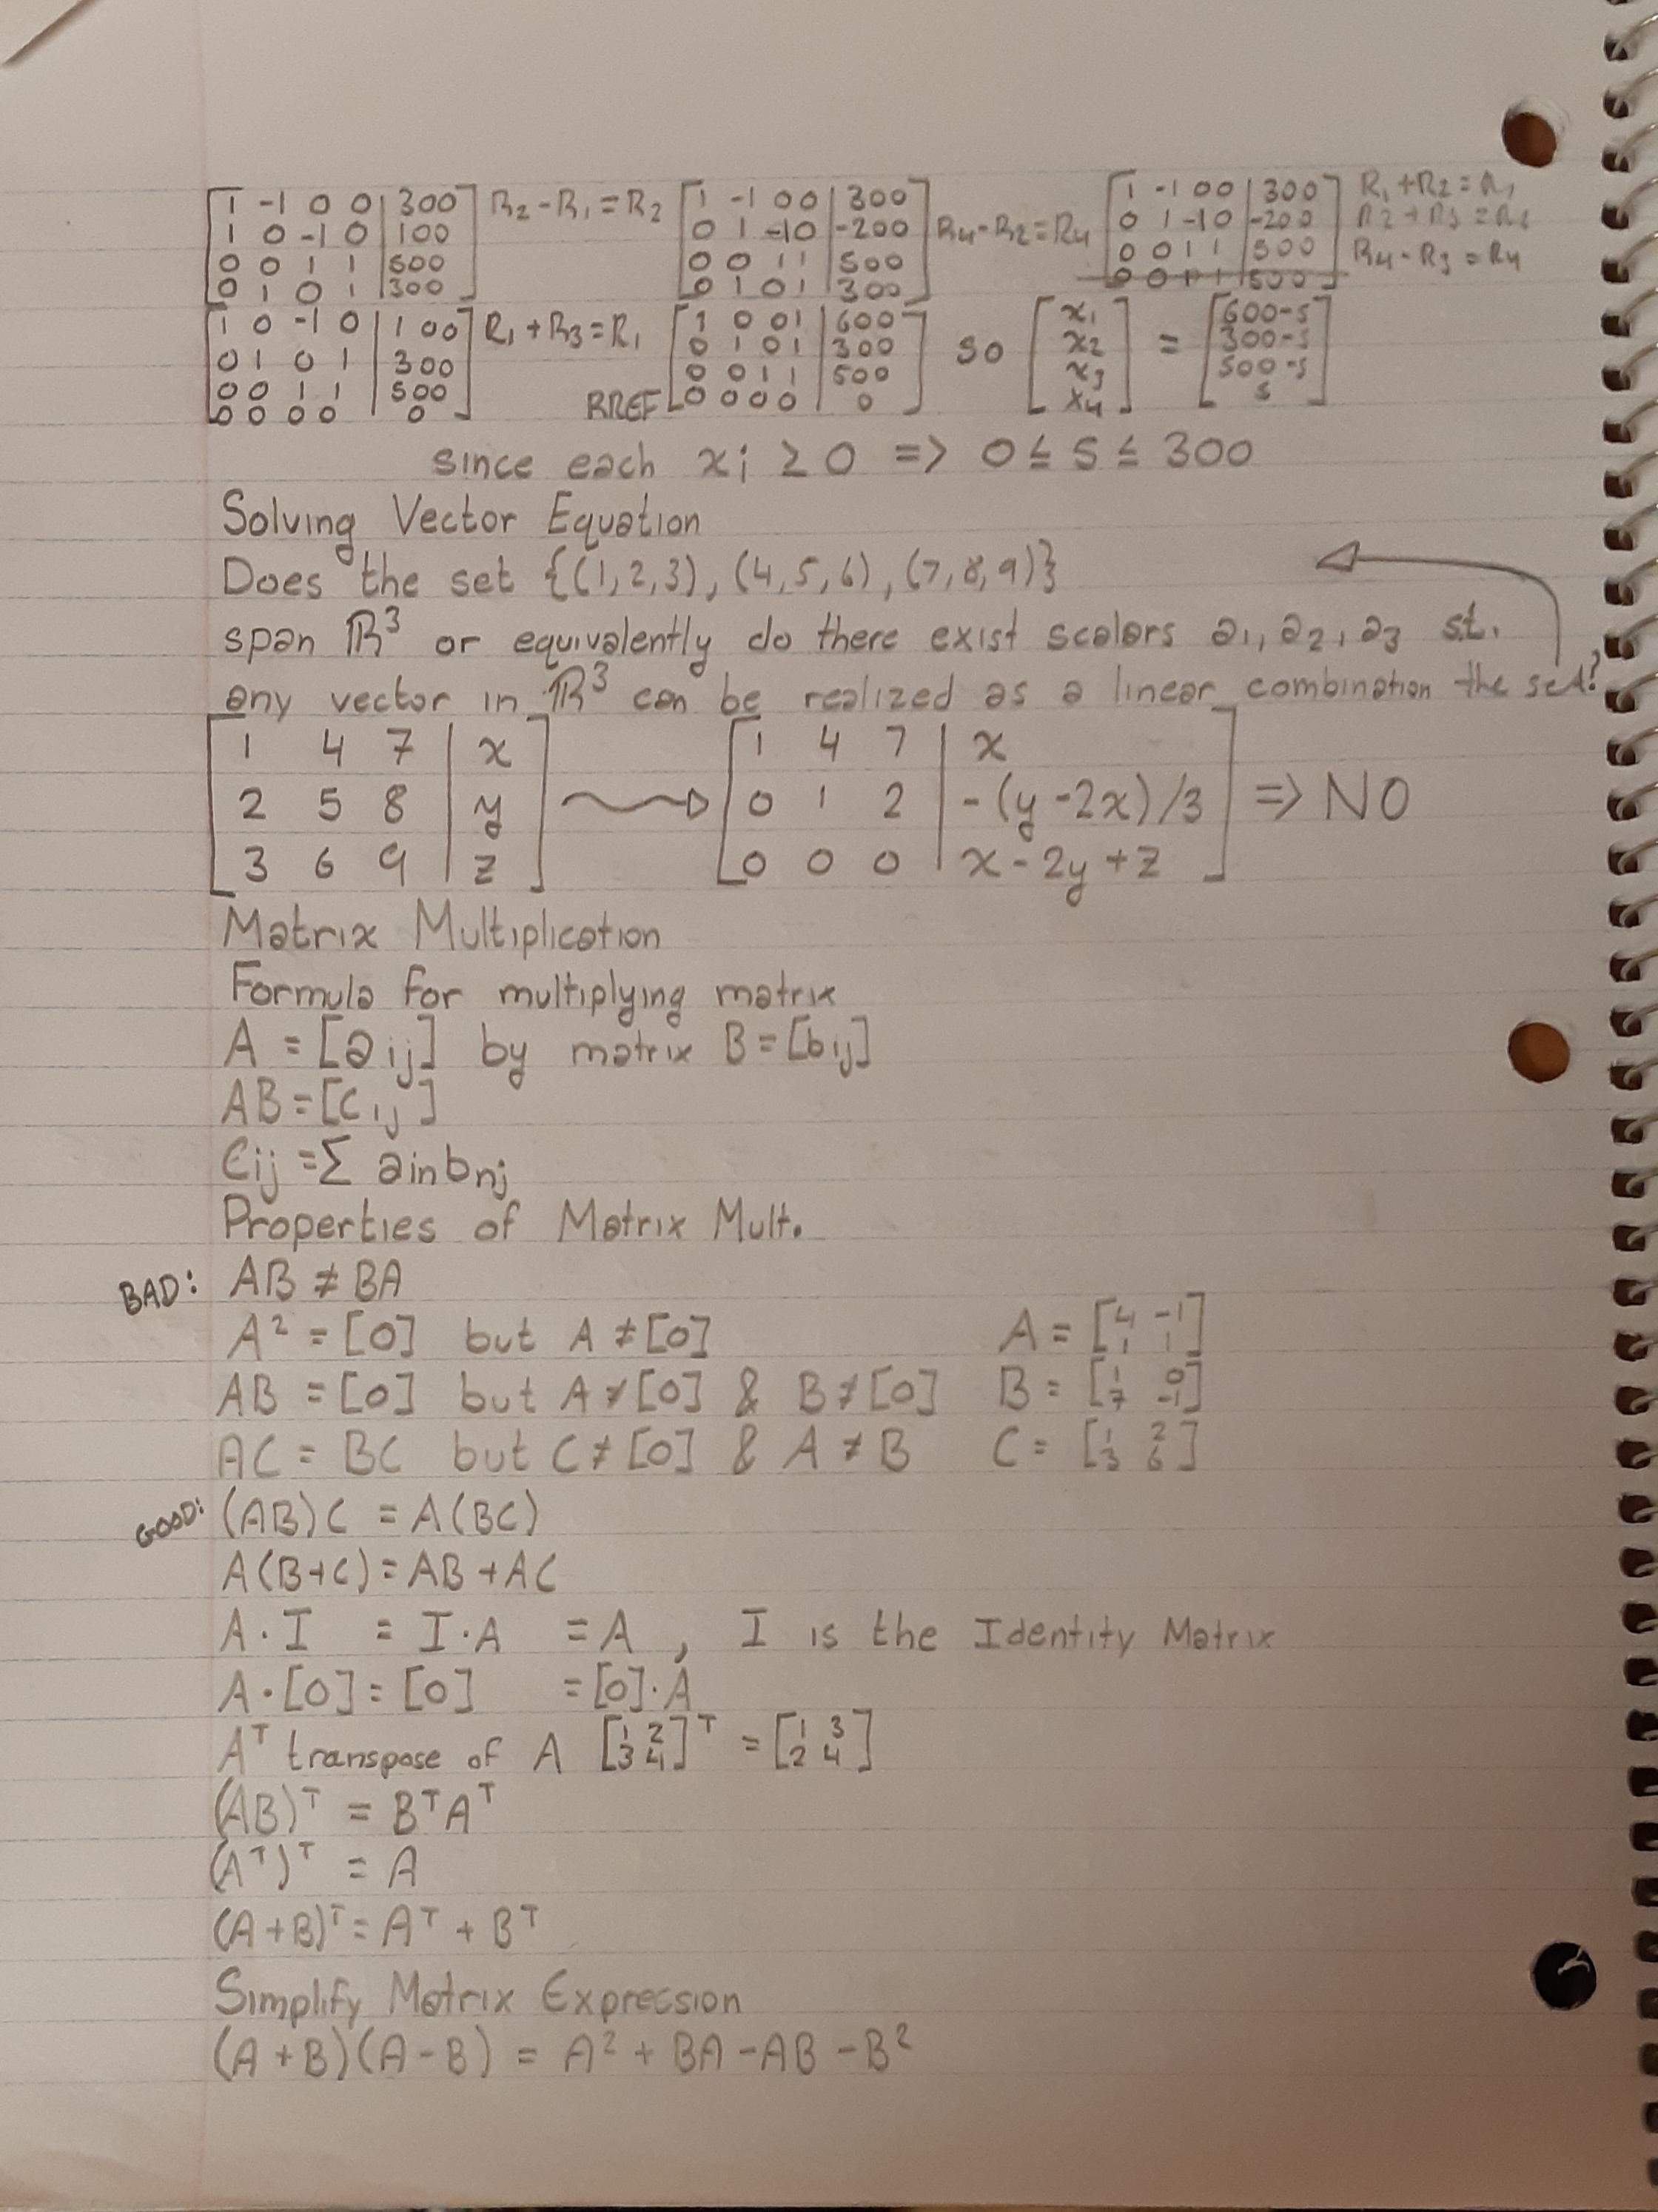 [1 -1 0 0 | 300] R₂-R₁=R₂ [1 -1 0 0 | 300] [1 -1 0 0 | 300] R₁+R₂=R₁
[1 0 -1 0 | 100] [0 1 -1 0 | -200] R₄-R₂=R₄ [0 1 -1 0 | -200] R₂+R₃=R₂
[0 0 1 1 | 500] [0 0 1 1 | 500] [0 0 1 1 | 500] R₄-R₃=R₄
[0 1 0 1 | 300] [0 1 0 1 | 300] [0 0 1 1 | 500]
[1 0 -1 0 | 100] R₁+R₃=R₁ [1 0 0 1 | 600] [x₁] [600-s]
[0 1 0 1 | 300] [0 1 0 1 | 300] so [x₂] = [300-s]
[0 0 1 1 | 500] [0 0 1 1 | 500] [x₃] [500-s]
[0 0 0 0 | 0] RREF [0 0 0 0 | 0] [x₄] [s]
since each xi ≥ 0 => 0 ≤ s ≤ 300
Solving Vector Equation
Does the set {(1,2,3), (4,5,6), (7,8,9)}
span ℝ³ or equivalently do there exist scalars a₁, a₂, a₃ s.t.
any vector in ℝ³ can be realized as a linear combination the set?
[1 4 7 | x] [1 4 7 | x]
[2 5 8 | y] → [0 1 2 | -(y-2x)/3] => NO
[3 6 9 | z] [0 0 0 | x-2y+z]
Matrix Multiplication
Formula for multiplying matrix
A = [aij] by matrix B=[bij]
AB=[Cij]
Cij =Σ ainbnj
Properties of Matrix Mult.
BAD: AB ≠ BA
A² = [0] but A ≠ [0] A = [4 -1; 1 1]
AB = [0] but A ≠ [0] & B ≠ [0] B = [1 0; 7 -1]
AC = BC but C ≠ [0] & A ≠ B C = [1 2; 3 6]
GOOD: (AB)C = A(BC)
A(B+C)=AB+AC
A·I = I·A = A , I is the Identity Matrix
A·[0]=[0] =[0]·A
Aᵀ transpose of A [1 2; 3 4]ᵀ = [1 3; 2 4]
(AB)ᵀ = BᵀAᵀ
(Aᵀ)ᵀ = A
(A+B)ᵀ= Aᵀ + Bᵀ
Simplify Matrix Expression
(A+B)(A-B) = A² + BA -AB -B²